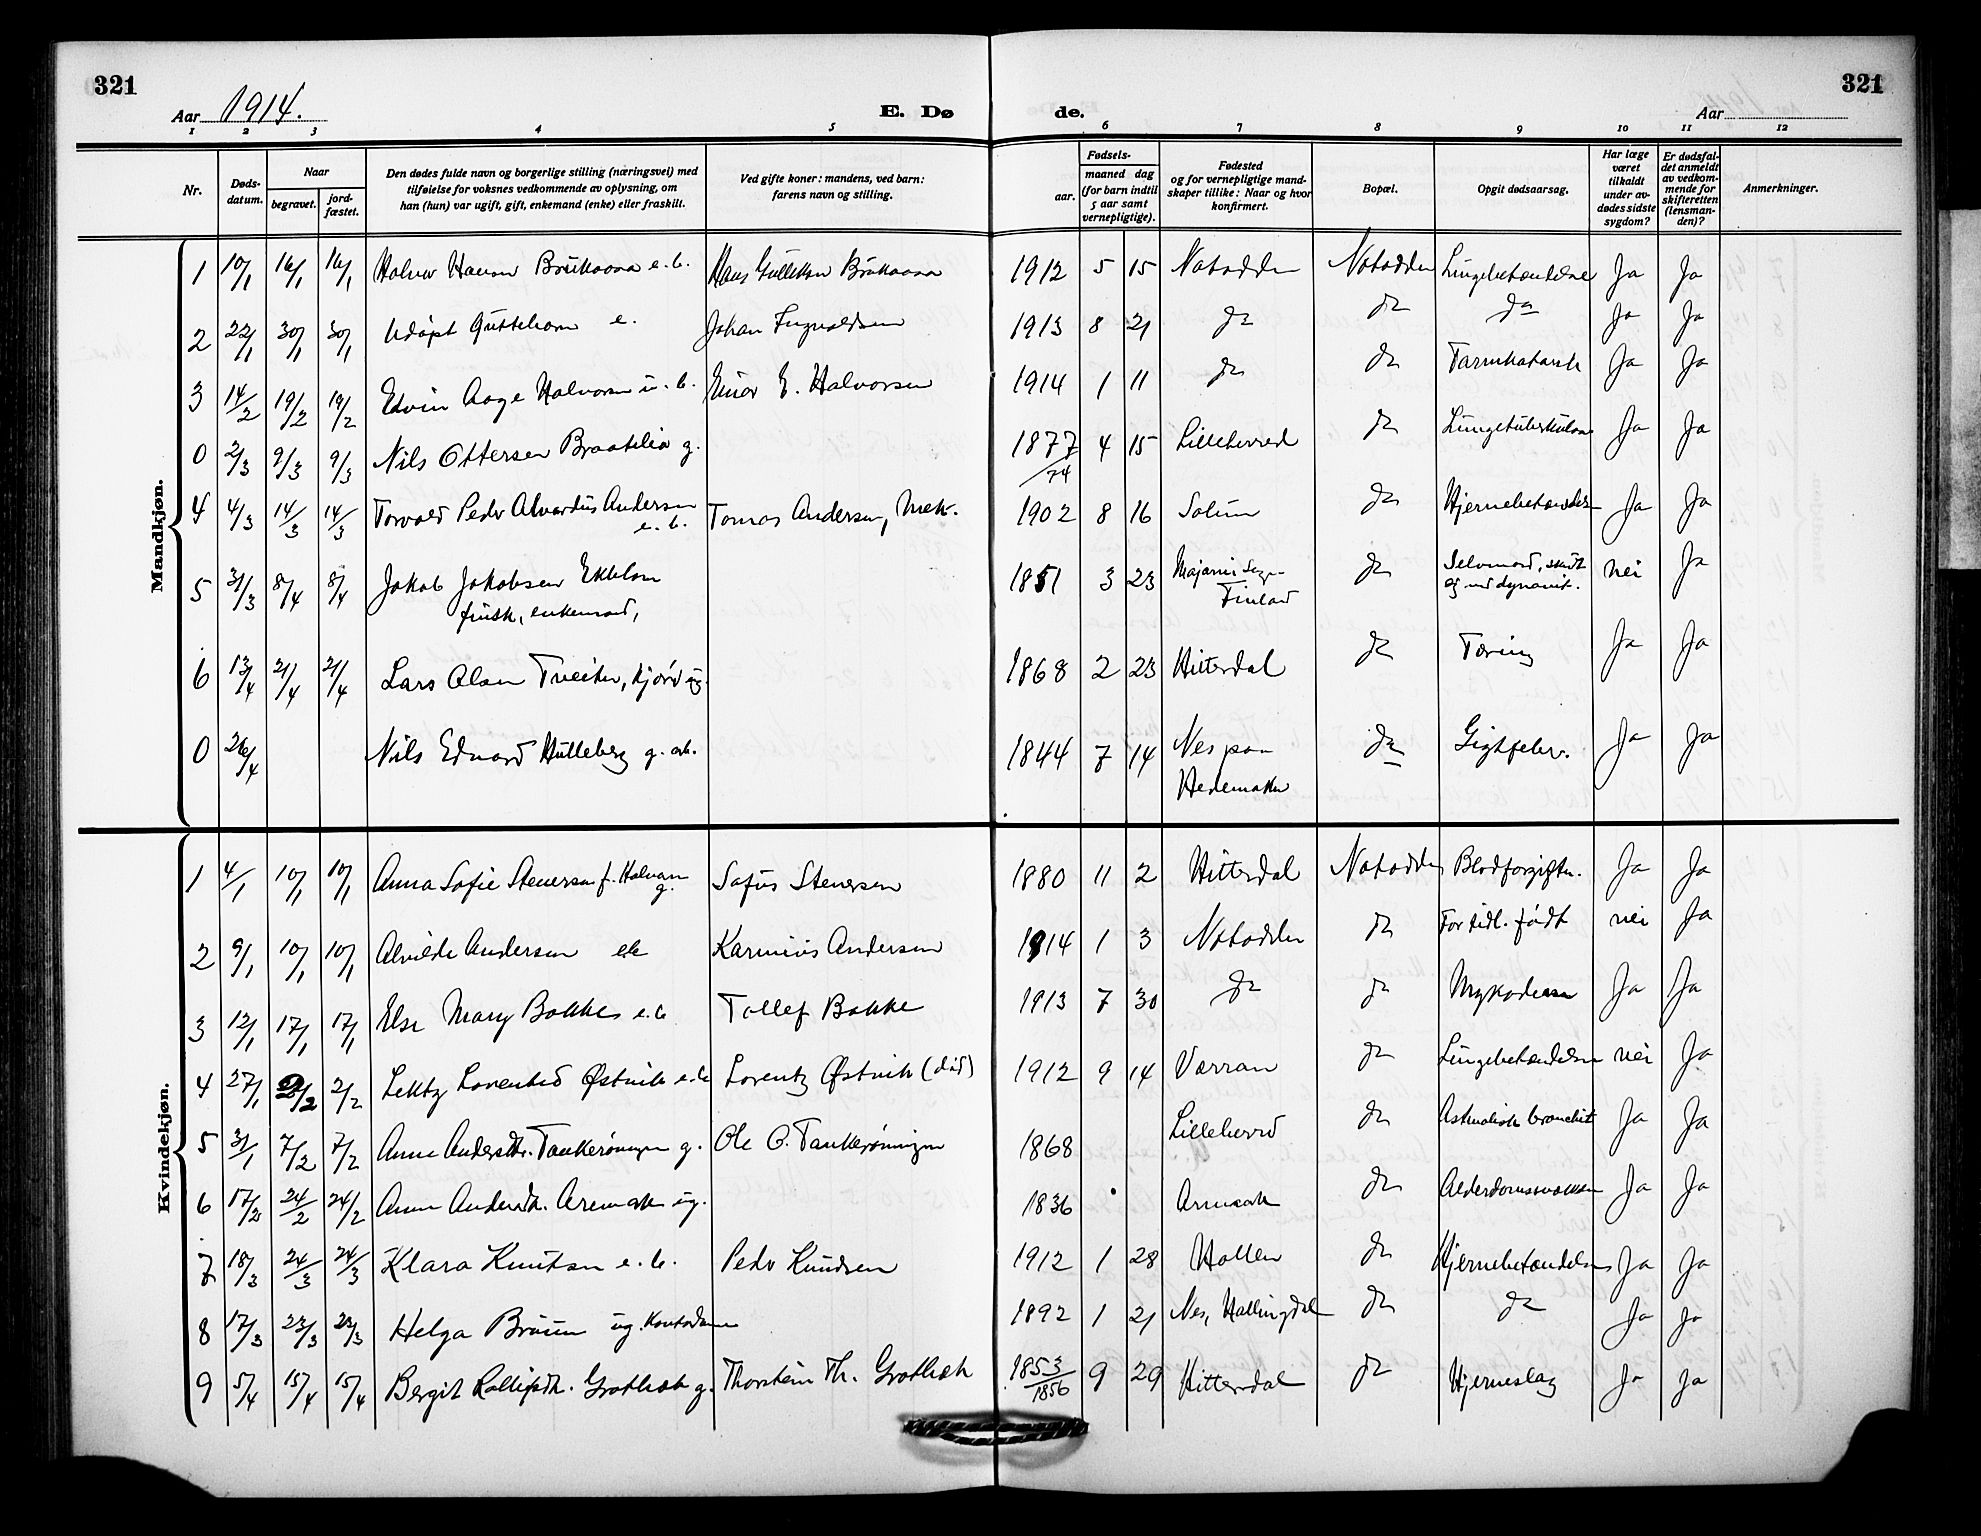 321
321
Aar 1914.
E. Dø
de.
Aar
1 2 3 4 5 6 7 8 9 10 11 12
Nr.
Døds-
datum.
Naar
begravet.
jord-
fæstet.
Den dødes fulde navn og borgerlige stilling (næringsvei) med
tilføielse for voksnes vedkommende av oplysning, om
han (hun) var ugift, gift, enkemand (enke) eller fraskilt.
Ved gifte koner: mandens, ved barn:
farens navn og stilling.
Fødsels-
aar.
maaned dag
(for barn indtil
5 aar samt
vernepligtige).
Fødested
og for vernepligtige mand-
skaper tillike: Naar og hvor
konfirmert.
Bopæl.
Opgit dødsaarsag.
Har læge
været
tilkaldt
under av-
dødes sidste
sygdom?
Er dødsfal-
det anmeldt
av vedkom-
mende for
skifteretten
(lensman-
den)?
Anmerkninger.
Mandkjøn.
1 10/1 16/1 16/1 e. b. 1912 5 15 Notodden Notodden Lungebetændelse Ja Ja
2 22/1 30/1 30/1 Udøpt Guttebarn e. Johan 1913 8 21 do do do Ja Ja
3 14/2 19/2 19/2 Edvin Aage Halvorsen u. b. Einar E. Halvorsen 1914 1 11 do do Tarmkatarrh Ja Ja
0 2/3 9/3 9/3 Nils Ottersen Braatelia g. 1877 4 15 Lilleherred do Lungetuberkulose Ja Ja
/74
4 4/3 14/3 14/3 Torvald Peder Andersen Tomas Andersen, Mek. 1902 8 16 Solum do Hjernebetændelse Ja Ja
e. b.
5 31/3 8/4 8/4 Jakob Jakobsen Ekblom 1851 3 23 do Selvmord, skudt nei Ja
finsk, enkemand, Finland sig med dynamit.
6 13/4 21/4 21/4 Lars Olsen Tveiten, ug. 1868 2 23 Hitterdal do Tæring Ja Ja
0 26/4 Nils Edvard Hulleberg g. arb. 1844 7 14 Nes paa do Gigtfeber. Ja Ja
Hedemarken
Kvindekjøn.
1 4/1 10/1 10/1 Anna Sofie Stenersen f. Halvorsen Sofus Stenersen 1880 11 2 Hitterdal Notodden Blodforgiftn. Ja Ja
g.
2 9/1 10/1 10/1 Alvilde Andersen Karinius Andersen 1914 1 3 Notodden do For tidl. født nei Ja
3 12/1 17/1 17/1 Else Mary Bakke e. b Tollef Bakke 1913 7 30 do do Ja Ja
4 27/1 2/2 2/2 Østvik e. b Lorentz Østvik (død) 1912 9 14 Værran do Lungebetændelse nei Ja
5 31/1 7/2 7/2 Anne Andersdtr. Tankerøningen g. Ole O. Tankerøningen 1868 Lilleherred do Astmatisk bronchit Ja Ja
6 17/2 24/2 24/2 Anne Andersdt. Aremark ug. 1836 Aremark do Alderdomssvakhet Ja Ja
7 18/3 24/3 24/3 Klara Knutsen e. b. Peder Knudsen 1912 1 28 Hollen do Hjernebetændelse Ja Ja
8 17/3 23/3 23/3 Helga Bruun ug. Kontordame 1892 1 21 Nes, Hallingdal do do Ja Ja
9 5/4 15/4 15/4 Bergit g. Thorstein Th. 1853 9 29 Hitterdal do Hjerneslag Ja Ja
1856